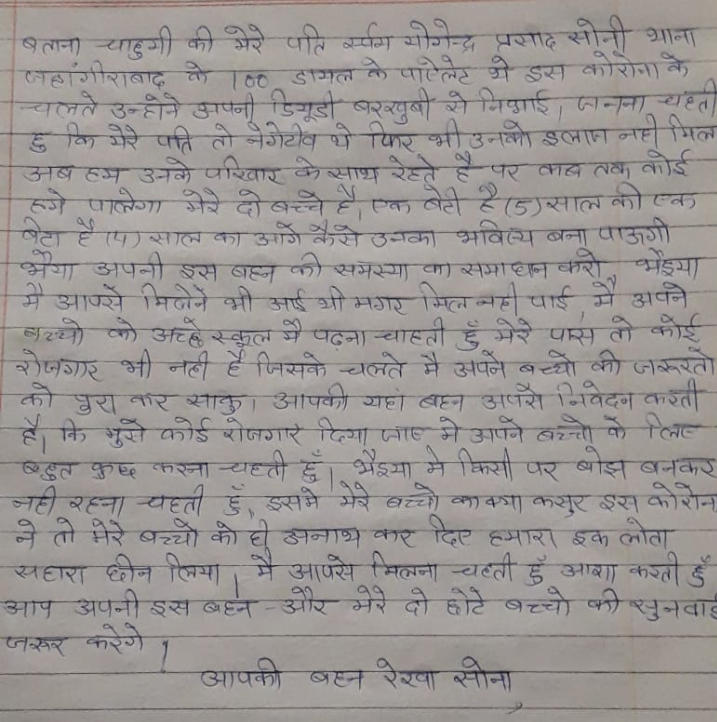 बताना चाहुगी की मेरे पति स्वंग योगेन्द्र प्रसाद सोनी थाना
जहांगीराबाद के 100 डायल के पाटेलेट थे इस कोरोना के
चलते उन्होने अपनी डियूडी बरखुबी से निभाई, जनना चहती
हु कि मेरे पति तो नेगेटीव थे फिर भी उनको इलाज नही मिल
अब हम उनके परिवार के साथ रेहते है पर कब तक कोई
हमे पालेगा मेरे दो बच्चे है, एक बेटी है (5) साल की एक
बेटा है (4) साल का आगे कैसे उनका भविष्य बना पाऊगी
भैया अपनी इस बहन की समस्या का समाधान करो भेइया
मै आपसे मिलेने भी आई थी मगर मिल नही पाई, मै अपने
बच्चो को अच्छे स्कूल मै पढ़ना चाहती हुँ मेरे पास तो कोई
रोजगार भी नही है जिसके चलते मै अपने बच्चो की जरूरतो
को पुरा कर साकु, आपकी यहां बहन आपसे निवेदन करती
है, कि मुसे कोई रोजगार दिया जाए मे अपने बच्चो के लिए
बहुत कुछ करना चहती हुँ, भैइया मे किसी पर बोझ बनकर
नही रहना चहती हुँ, इसमे मेरे बच्चो का क्या कसुर इस कोरोन
ने तो मेरे बच्चो को ही अनाथ कर दिए हमारा इक लोता
सहारा छीन लिया, मै आपसे मिलना चहती हुँ आशा करती हुँ
आप अपनी इस बहन और मेरे दो छोटे बच्चो की सुनवाई
जरूर करेगे।
आपकी बहन रेखा सोना